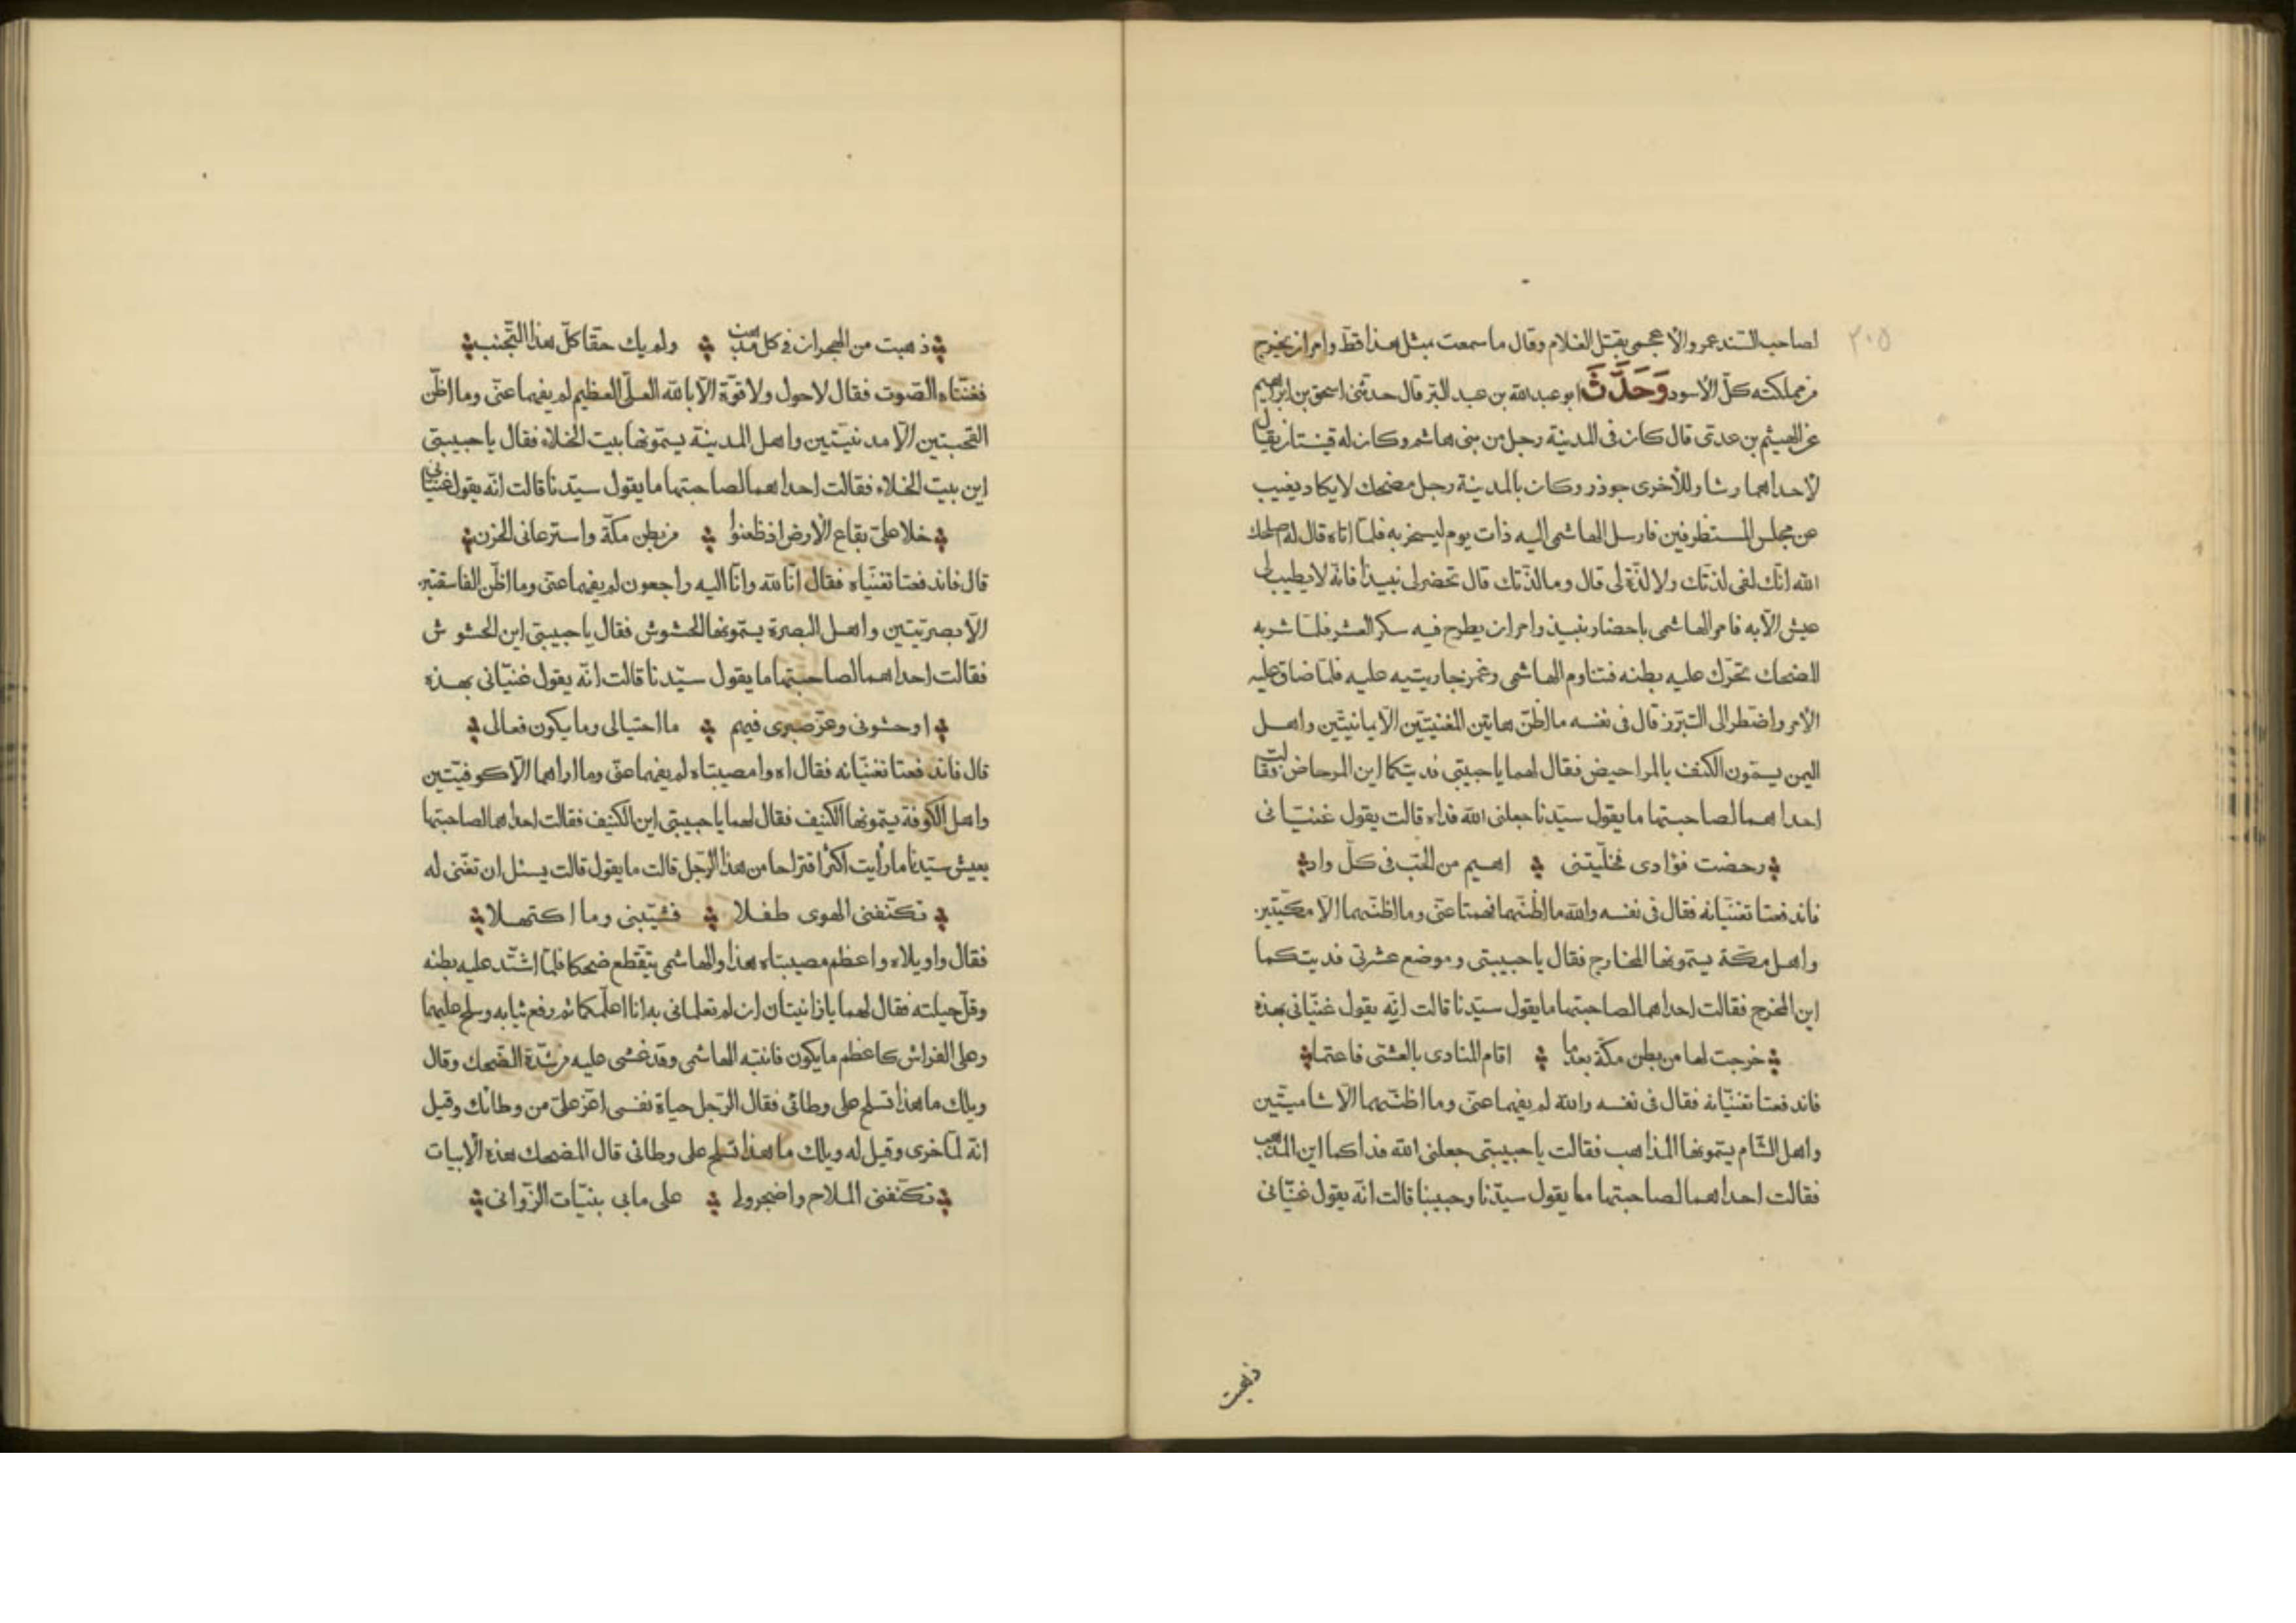 ٢٠٥
لصاحب السند عمرو الأعجمى بقتل الغلام وقال ما سمعت مبثل هذا قط وامر ان يخرج
من مملكته كلّ الأسود وَحَدَّثَ ابو عبد الله بن عبد البر قال حدثنى اسحق بن ابراهيم
عن الهيثم بن عدى قال كان فى المدينة رجل من بنى هاشم وكان له قينتان يقال
لأحداهما رشا وللأخرى جوذر وكان بالمدينة رجل مضحك لا يكاد يغيب
عن مجلس المستظرفين فارسل الهاشمى اليه ذات يوم ليسخر به فلمّا اتاه قال له اصلحك
الله انّك لفى لذتك ولا لذّة لى قال وما لذّتك قال تحضر لى نبيذاً فانّه لا يطيب لى
عيش الّا به فامر الهاشمى باحضار نبيذ وامر ان يطرح فيه سكر العشر فلمّا شربه
المضحك تحرّك عليه بطنه فتناوم الهاشمى وغمز جاريتيه عليه فلمّا ضاق عليه
الأمر واضطر الى التبرّز قال فى نفسه ما اظنّ هاتين المغنيتين الّا يمانيتّين واهل
اليمن يسمّون الكنف بالمراحيض فقال لهما يا حبيبتى فديتكما اين المرحاض فقالت
احداهما لصاحبتها ما يقول سيّدنا جعلنى الله فداه قالت يقول غنّيانى
رحضت فؤادى فخلّيتنى اهيم من الحبّ فى كلّ واد
فاندفعتا تغنّيانه فقال فى نفسه والله ما اظنّهما فهمتا عنّى وما اظنّهما الّا مكّيتين
واهل مكّة يسمّونها المخارج فقال يا حبيبتى وموضع عشرتى فديتكما
اين المخرج فقالت احداهما لصاحبتها ما يقول سيّدنا قالت انّه يقول غنّيانى بهذه
خرجت لها من بطن مكّة بعدما اقام المنادى بالعشّى فاعتما
فاندفعتا تغنّيانه فقال فى نفسه والله لم يفهما عنّى وما اظنّهما الّا شاميتّين
واهل الشّام يسمّونها المذاهب فقالت يا حبيبتى جعلنى الله فداكما اين المذهب
فقالت احداهما لصاحبتها ما يقول سيّدنا وحبيبنا قالت انّه يقول غنّيانى
ذهبت
ذهبت من الهجران فى كل مذهب ولم يك حقا كلّ هذا التّجنب
فغنّتاه الصّوت فقال لا حول ولا قوّة الّا بالله العلّى العظيم لم يفهما عنّى وما اظّن
القحبتين الّا مدنيتّين واهل المدينة يسمّونها بيت الخلاء فقال يا حبيبتى
اين بيت الخلاء فقالت احداهما لصاحبتها ما يقول سيّدنا قالت انّه يقول غنّيانى
خلا علىّ بقاع الأرض اذ ظعنوا من بطن مكّة واسترعانى الحزن
قال فاندفعتا تغنّياه فقال انّا لله وانّا اليه راجعون لم يفهما عنّى وما اظّن الفاسقتين
الّا بصريّتين واهل البصرة يسمّونها الحشوش فقال يا حبيبتى اين الحشوش
فقالت احداهما لصاحبتها ما يقول سيّدنا قالت انّه يقول غنّيانى بهذه
اوحشونى وعزّ صبرى فيهم ما احتيالى وما يكون فعالى
قال فاندفعتا تغنّيانه فقال اه وا مصيبتاه لم يفهما عنّى وما اراهما الّا كوفيّتين
واهل الكوفة يسمّونها الكنيف فقال لهما يا حبيبتى اين الكنيف فقالت احداهما لصاحبتها
بعيش سيّدنا ما رأيت اكثر اقتراحا من هذا الرّجل قالت ما يقول قالت يسئل ان تغّنى له
تكنّفنى الهوى طفلا فشيّبنى وما اكتهلا
فقال واويلاه واعظم مصيبتاه هذا والهاشمى يتقطع ضحكا فلمّا اشتّد عليه بطنه
وقلّ حيلته فقال لهما يا زانيتان ان لم تعلمانى به انا اعلّمكما ثم رفع ثيابه وسلح عليهما
وعلى الفراش كاعظم ما يكون فانتبه الهاشمى وقد غشى عليه من شدّة الضّحك وقال
ويلك ما هذا تسلح على وطائى فقال الرّجل حياة نفسى اعّز علىّ من وطائك وقيل
انّه لمّا خرى وقيل له ويلك ما هذا تسلح على وطائى قال المضحك هذه الأبيات
تكنّفنى الملاح واضجرونى على مابى بنيّات الزّوانى